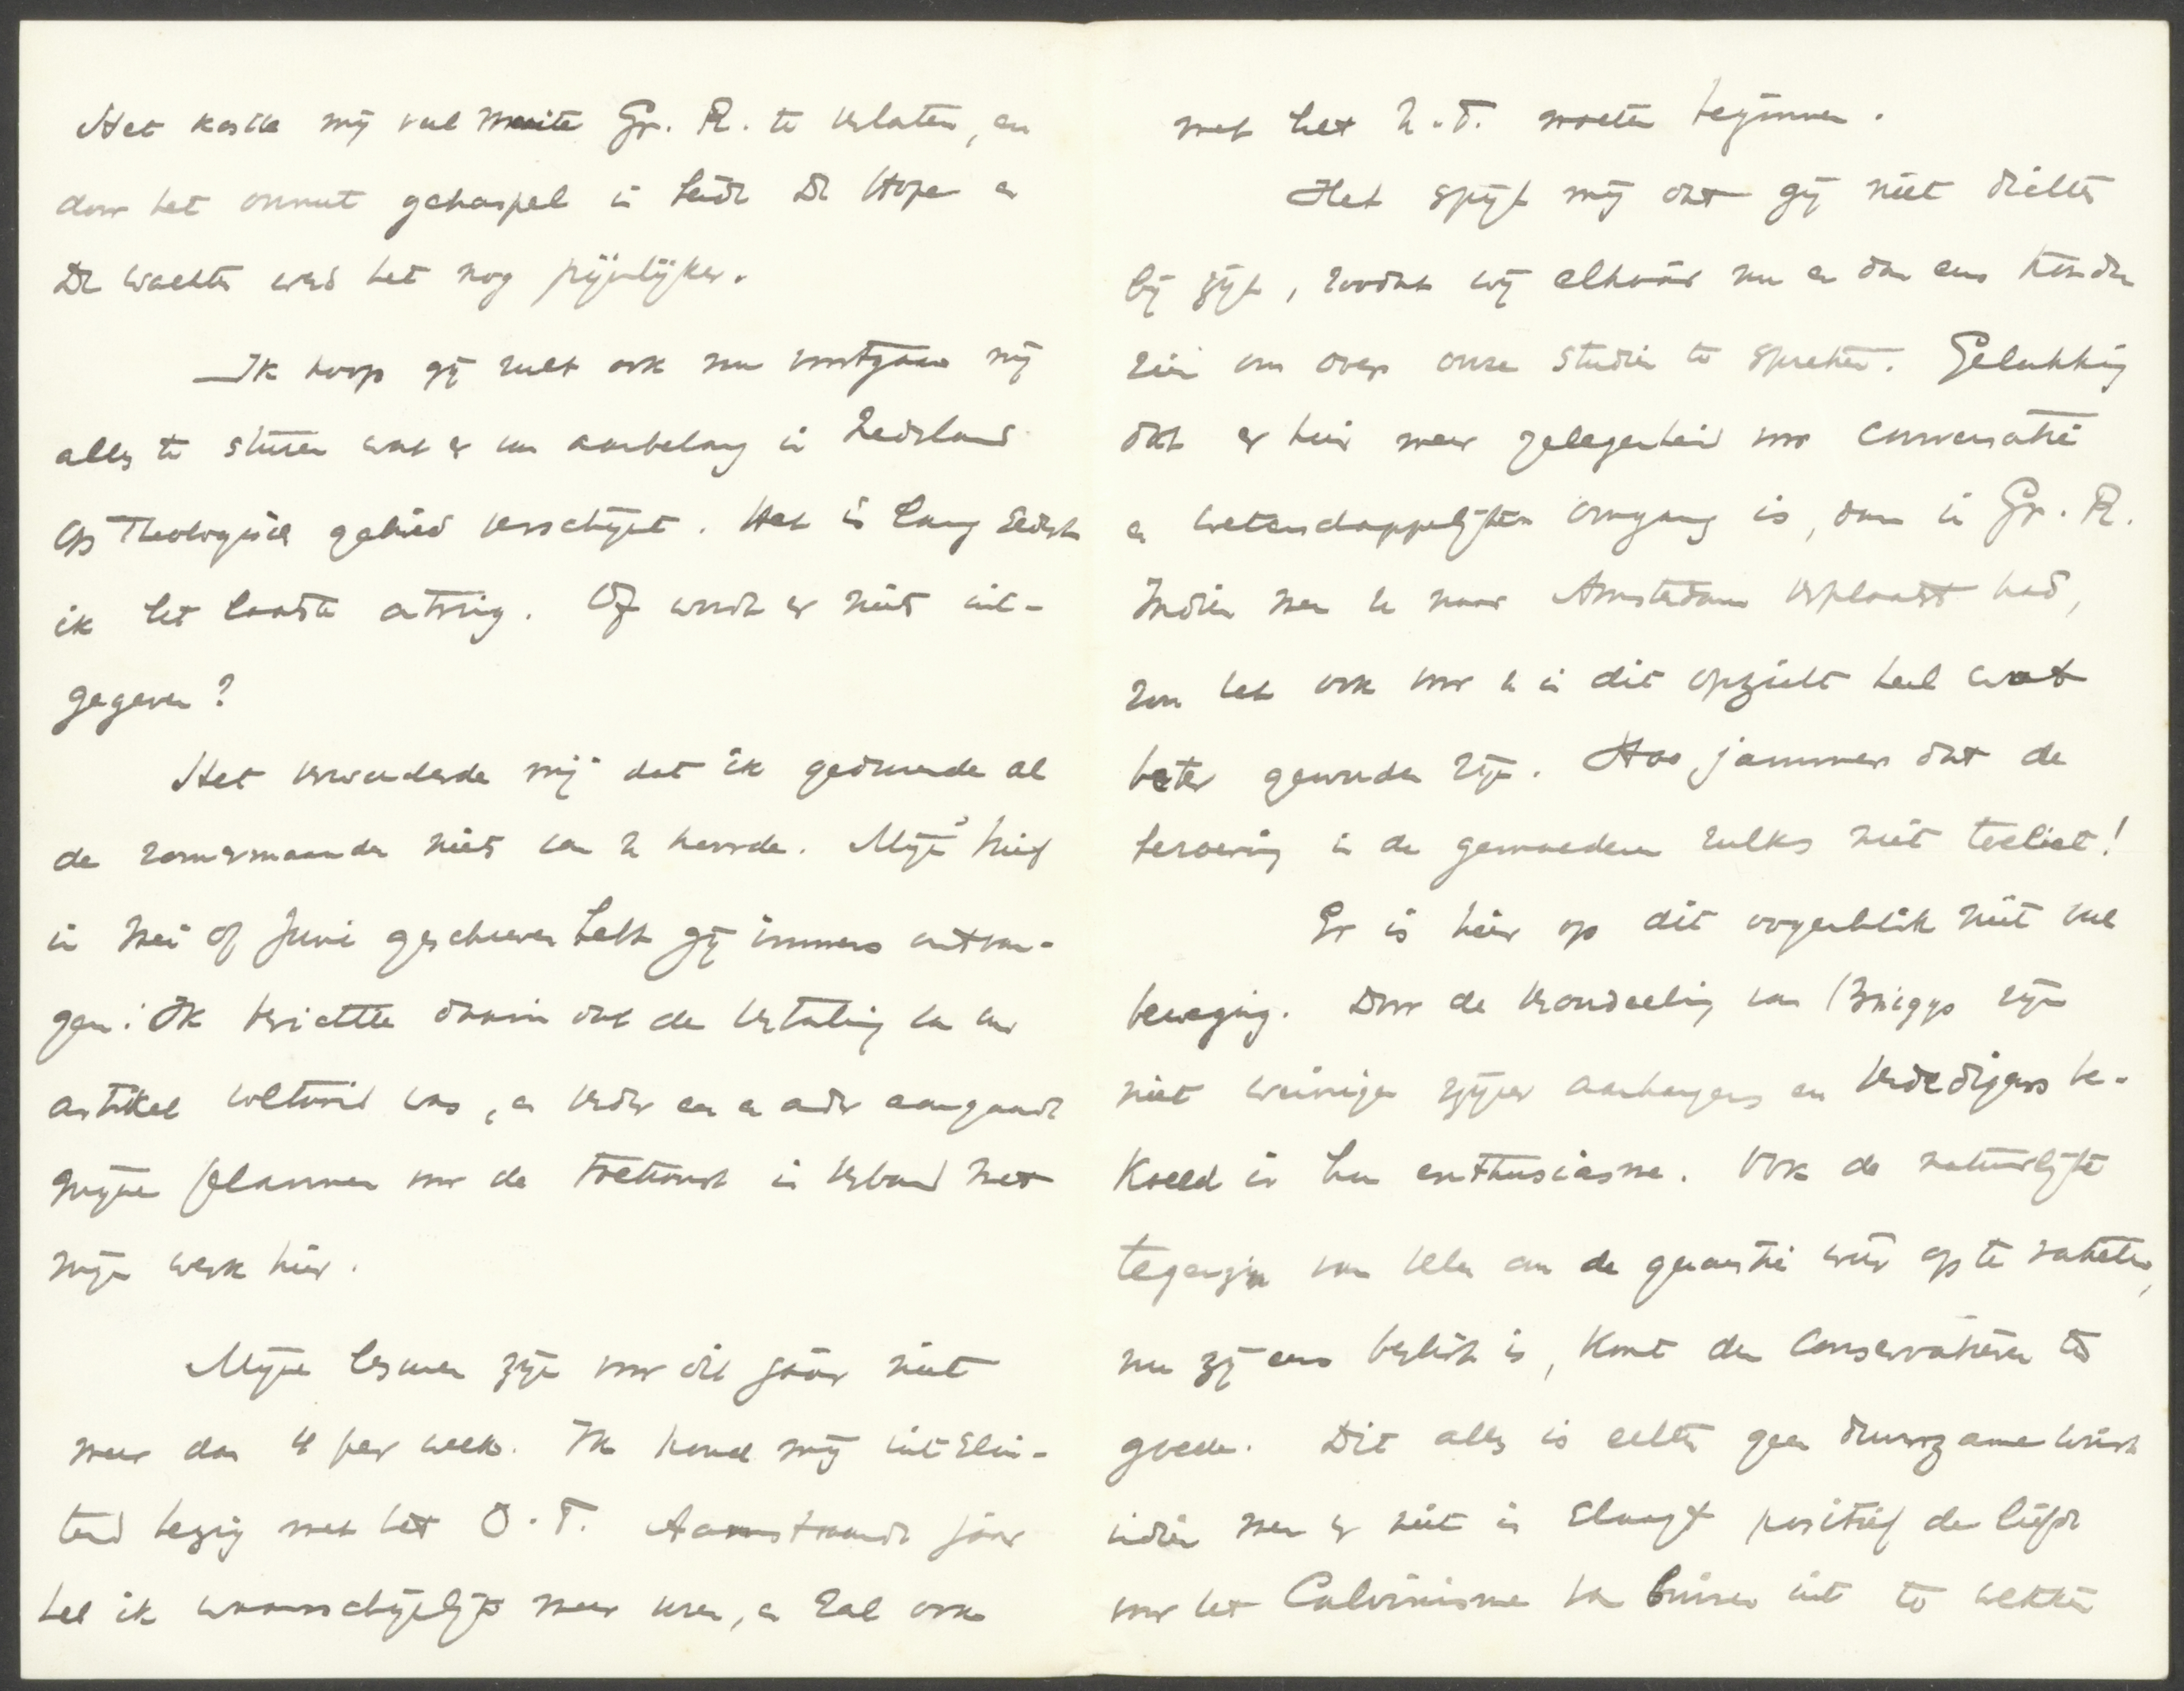 Het kostte mij veel moeite Gr. R. te verlaten, en
door het onnut gehaspel in beide De Hope en
De Wachter werd het nog pijnlijker.
Ik hoop gij zult ook nu voortgaan mij
alles te sturen wat er van aanbelang in Nederland
op Theologisch gebied verschijnt. Het is lang sedert
ik het laatste ontving. Of wordt er niets uit-
gegeven?
Het verwonderde mij dat ik gedurende al
de zomermaanden niets van U hoorde. Mijn brief
in Mei of Juni geschreven hebt gij immers ontvan-
gen? Ik berichtte daarin dat de vertaling van uw
artikel voltooid was, en verder een en ander aangaande
mijne plannen voor de toekomst in verband met
mijn werk hier.
Mijne lesuren zijn voor dit jaar niet
meer dan 4 per week. Ik houd mij uitslui-
tend bezig met het O.T. Aanstaande jaar
heb ik waarschijnlijk meer uren, en zal ook
met het N.T. moeten beginnen.
Het spijt mij dat gij niet dichter
bij zijt, zoodat wij elkaar nu en dan eens konden
zien om over onze studien te spreken. Gelukkig
dat er hier meer gelegenheid voor conversatie
en wetenschappelijken omgang is, dan in Gr. R.
Indien men U naar Amsterdam verplaatst had,
zou het ook voor U in dit opzicht heel wat
beter geworden zijn. Hoe jammer dat de
beroering in de gemoederen zulks niet toeliet!
Er is hier op dit oogenblik niet veel
beweging. Door de veroordeeling van Briggs zijn
niet weinigen zijner aanhangers en verdedigers be-
koeld in hun enthusiasme. Ook de natuurlijke
tegenzin van velen om de quaestie weer op te rakelen,
nu zij eens beslist is, komt den conservatieven ten
goede. Dit alles is echter geen duurzame winst
indien men er niet in slaagt positief de liefde
voor het Calvinisme van binnen uit te wekken